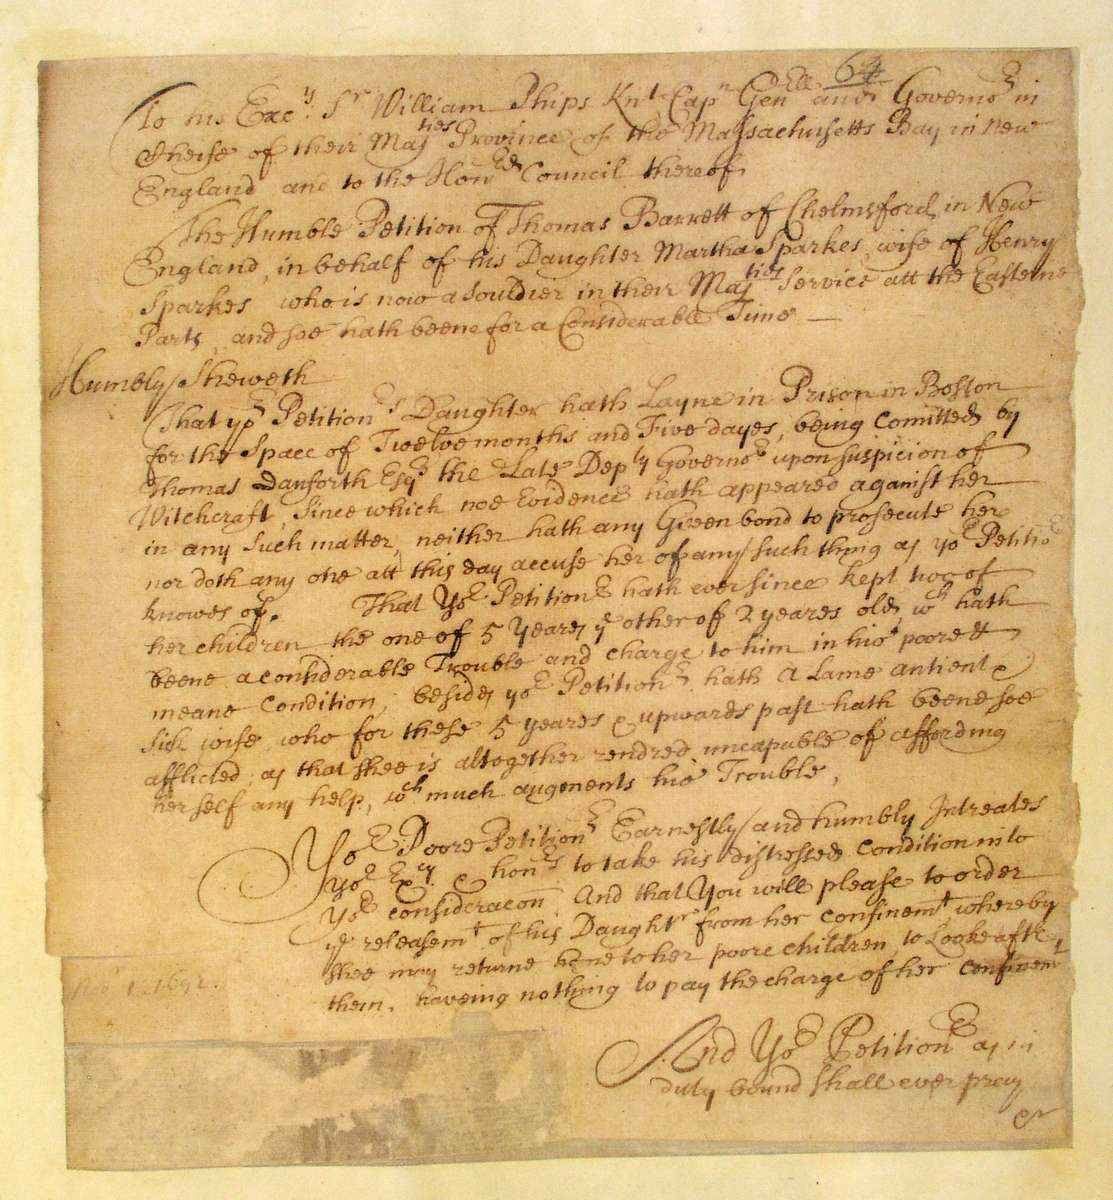 64
To his Exc.y Sr William Phips Knt Capn Genll and Governor in
cheife of their Majties Province of the Massachusetts Bay in New
England and to the Honrd Council thereof
The Humble Petition of Thomas Barrett of Chelmsford in New
England, in behalf of his Daughter Martha Sparkes, wife of Henry
Sparkes, who is now a souldier in their Majties Service att the Easterne
Parts, and soe hath beene for a Considerable Time —
Humbly Sheweth
That yor Petitionrs Daughter hath Layne in Prison in Boston
for the Space of Twelve months and Five dayes, being Comitted by
Thomas Danforth Esqr the Late Depty Governor upon suspicion of
Witchcraft, Since which noe Evidence hath appeared against her
in any Such matter, neither hath any Given bond to prosecute her
nor doth any one att this day accuse her of any such thing as yor Petitior
knowes of. That Yor Petitionr hath ever since kept two of
her children the one of 5 Yeares ye other of 2 yeares old, wch hath
beene a considerable Trouble and charge to him in his poore &
meane Condition, besides yor Petitionr hath a Lame antient &
Sick wife, who for these 5 yeares & upwards past hath beene soe
afflicted, as that shee is altogether rendred uncapable of affording
her self any help, wch much augments his Trouble,
Yor Poore Petitionr Earnestly and humbly Intreates
Yor Excy & honrs to take his distressed Condition into
Yor consideracon, And that You will please to order
ye releasemt of his Daughtr from her confinemt whereby
shee may returne home to her poore children to Looke aftr
them, haveing nothing to pay the charge of her Confinemt
Nov 1. 1692.
And Yor Petitionr as in
duty bound shall ever pray
&c